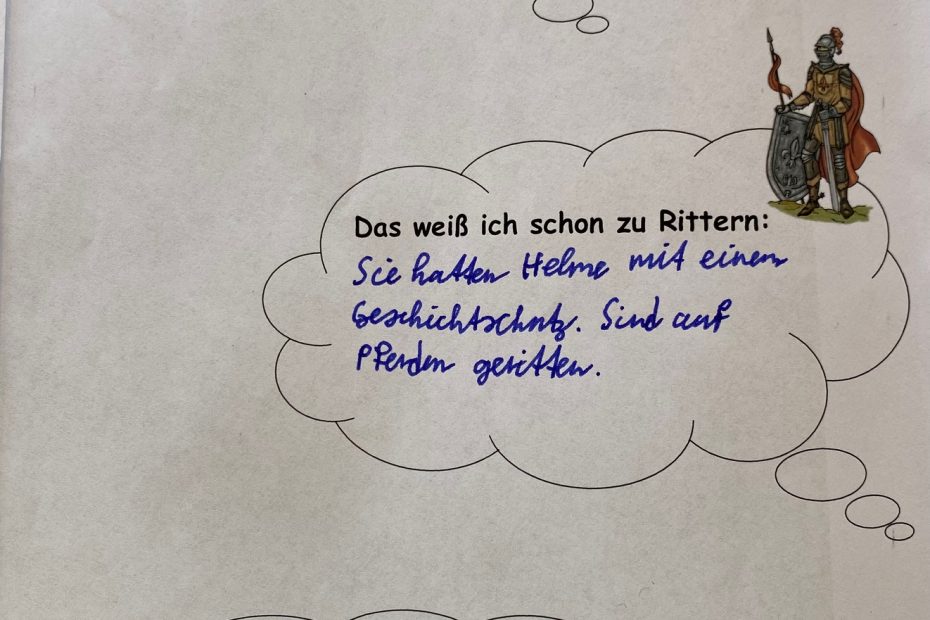 Das weiß ich schon zu Rittern:
Sie hatten Helme mit einem
Geschichtschutz. Sind auf
Pferden geritten.